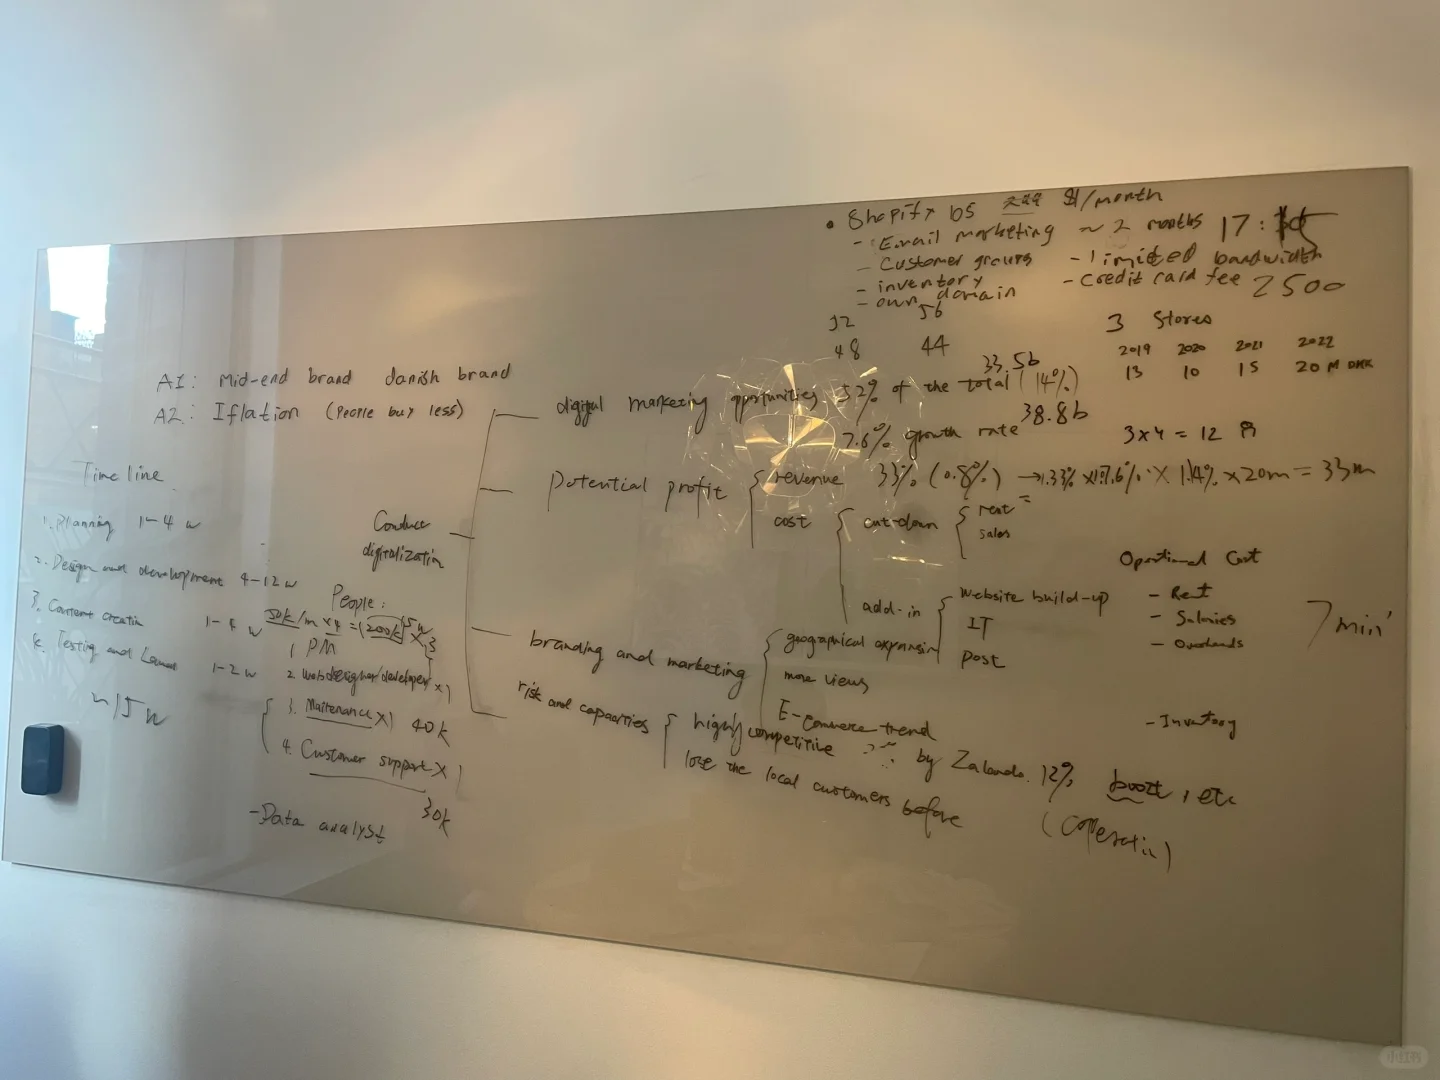 • Shopify bs $1/month
- Email marketing ~ 2 months 17:
- Customer groups - limited bandwidth
- inventory - Credit card fee 2500
- own domain
52 56
48 44
3 Stores
2019 2020 2021 2022
13 10 15 20 M DKK
3x4 = 12
A1: Mid-end brand danish brand
A2: Iflation (People buy less)
Conduct digitalization
33.5b
digital marketing opportunities 52% of the total (14%)
7.6% growth rate 38.8b
Potential profit
revenue 33% (0.8%) → 1.33% x 1.7.6% x 1.14% x 20m = 33m
cost
cut-down
rent
sales
add-in
Website build-up
IT
post
branding and marketing
geographical expansion
more views
E-commerce trend
risk and capacities
highly competitive by Zalando. 12% boozt, etc
lose the local customers before
Operational Cost
- Rent
- Salaries
- Overheads
- Inventory
7 min'
Time line
1. Planning 1-4 w
2. Design and development 4-12 w
3. Content creation 1-4 w
4. Testing and Launch 1-2 w
~15 w
People:
50k/m x 4 = (200k) x 3
1 PM
2. Web designer/developer x 1
3. Maitenance x 1 40k
4. Customer support x 1
30k
- Data analyst
小红书